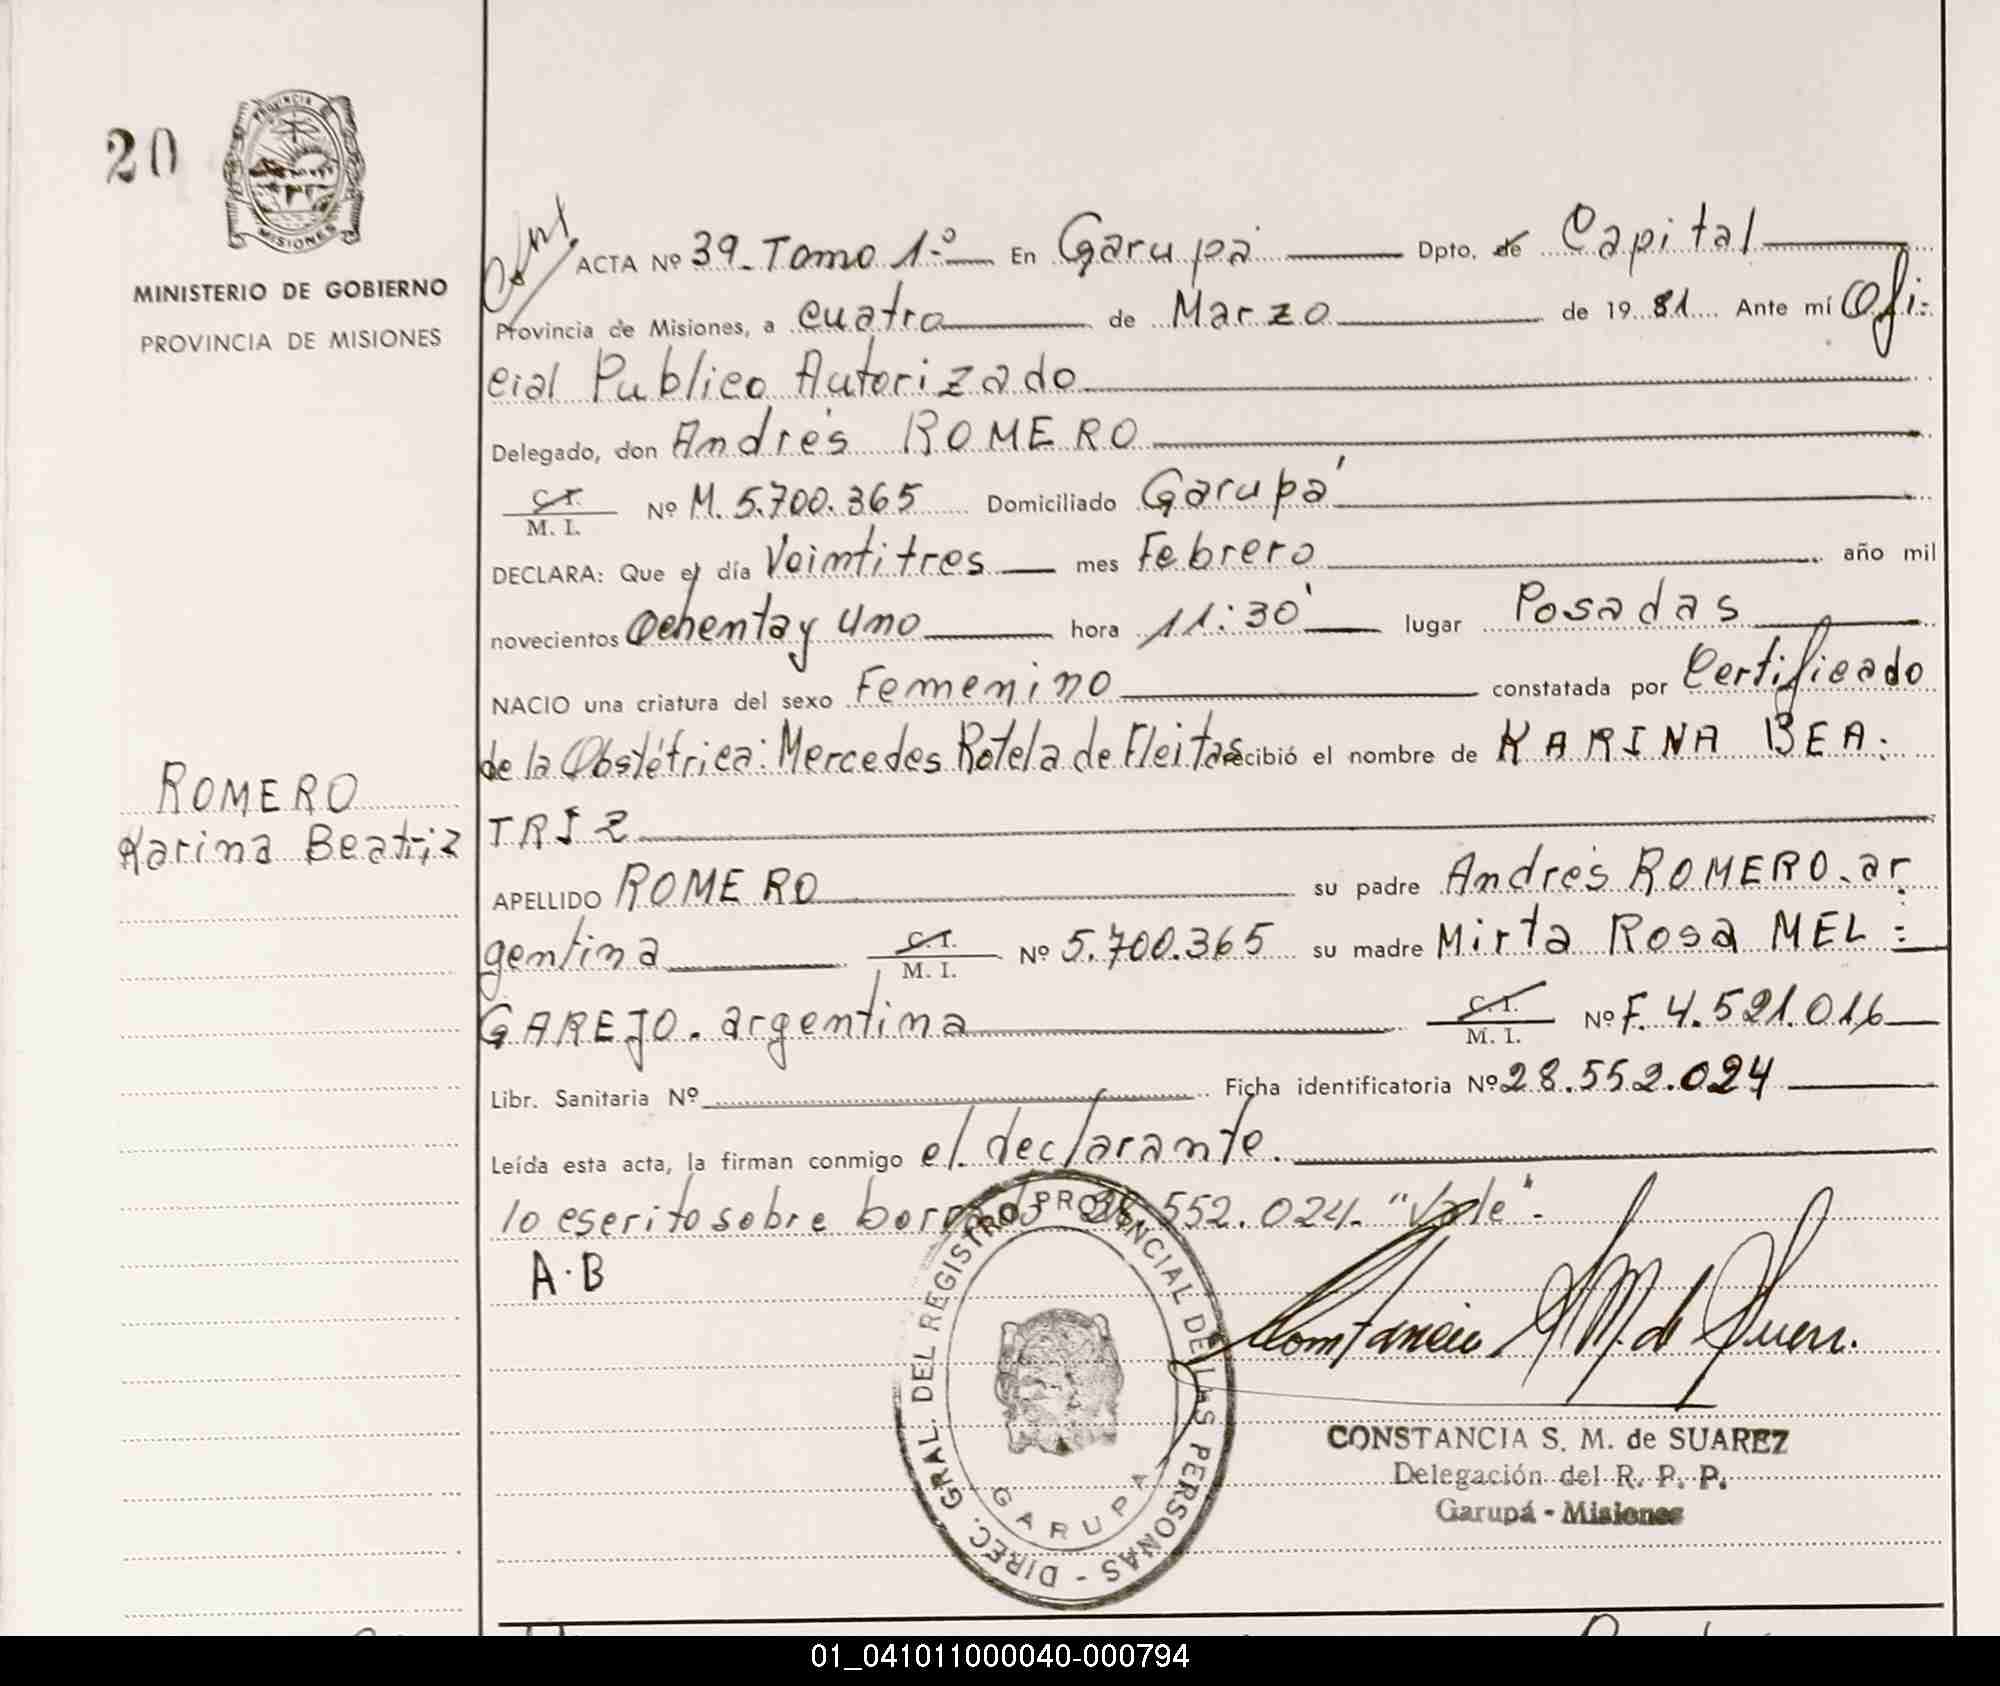 20
PROVINCIA DE
MISIONES
MINISTERIO DE GOBIERNO
PROVINCIA DE MISIONES
ROMERO
Karina Beatriz
ACTA Nº 39 - Tomo 1º En Garupá Dpto. de Capital
Provincia de Misiones, a cuatro de Marzo de 1981 Ante mí Ofi-
cial Publico Autorizado
Delegado, don Andrés ROMERO
C. I.
M. I.
Nº M. 5.700.365 Domiciliado Garupá
DECLARA: Que el día Veintitres mes Febrero año mil
novecientos Ochenta y Uno hora 11:30' lugar Posadas
NACIO una criatura del sexo Femenino constatada por Certificado
de la Obstétrica: Mercedes Rotela de Fleitas recibió el nombre de KARINA BEA-
TRIZ
APELLIDO ROMERO su padre Andrés ROMERO. ar-
gentina C. I. M. I. Nº 5.700.365 su madre Mirta Rosa MEL-
GAREJO. argentina C. I. M. I. Nº F. 4.521.016
Libr. Sanitaria Nº Ficha identificatoria Nº 28.552.024
Leída esta acta, la firman conmigo el declarante.
lo escrito sobre borrado 28.552.024. "Vale".-
A.B
DIREC. GRAL. DEL REGISTRO PROVINCIAL DE LAS PERSONAS -
GARUPA
Constancia S M. de Suarez
CONSTANCIA S. M. de SUAREZ
Delegación del R. P. P.
Garupá - Misiones
01_041011000040-000794